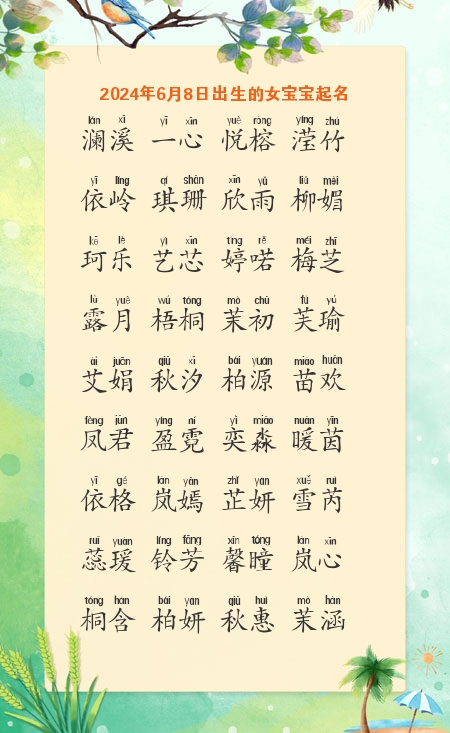 2024年6月8日出生的女宝宝起名
lán xī yī xīn yuè róng yíng zhú
澜溪 一心 悦榕 滢竹
yī líng qí shān xīn yǔ liǔ mèi
依岭 琪珊 欣雨 柳媚
kē lè yì xīn tíng rě méi zhī
珂乐 艺芯 婷喏 梅芝
lù yuè wú tóng mò chū fú yú
露月 梧桐 茉初 芙瑜
ài juān qiū xī bǎi yuán miáo huān
艾娟 秋汐 柏源 苗欢
fèng jūn yíng ní yì miǎo nuǎn yīn
凤君 盈霓 奕淼 暖茵
yī gé lán yān zhǐ yán xuě ruì
依格 岚嫣 芷妍 雪芮
ruǐ yuàn líng fāng xīn tóng lán xīn
蕊瑗 铃芳 馨曈 岚心
tóng hán bǎi yán qiū huì mò hán
桐含 柏妍 秋惠 茉涵